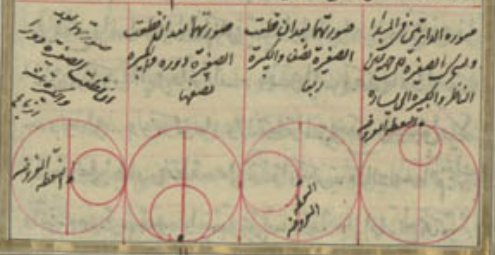 صوره الدايرتين فى المبدا
الصغيره الى يمين
الناظر والكبيرة الى يساره
النقطة المفروضه
صورتهما بعد ان قطعت
الصغيرة نصف والكبيرة
ربعا
النقطة
المفروضه
صورتهما بعد ان قطعت
الصغيرة دوره والكبيرة
نصفها
صورتهما بعد
ان قطعت الصغيرة دورا
والكبيرة
ارباع
النقطة المفروضه